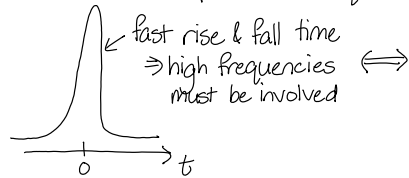 fast rise & fall time
⇒ high frequencies ⟺
must be involved
0
t